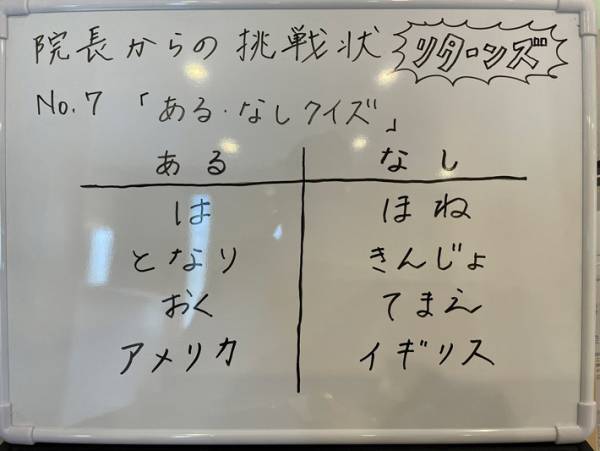 院長からの挑戦状 リターンズ
No.7 「ある・なしクイズ」
ある なし
は ほね
となり きんじょ
おく てまえ
アメリカ イギリス